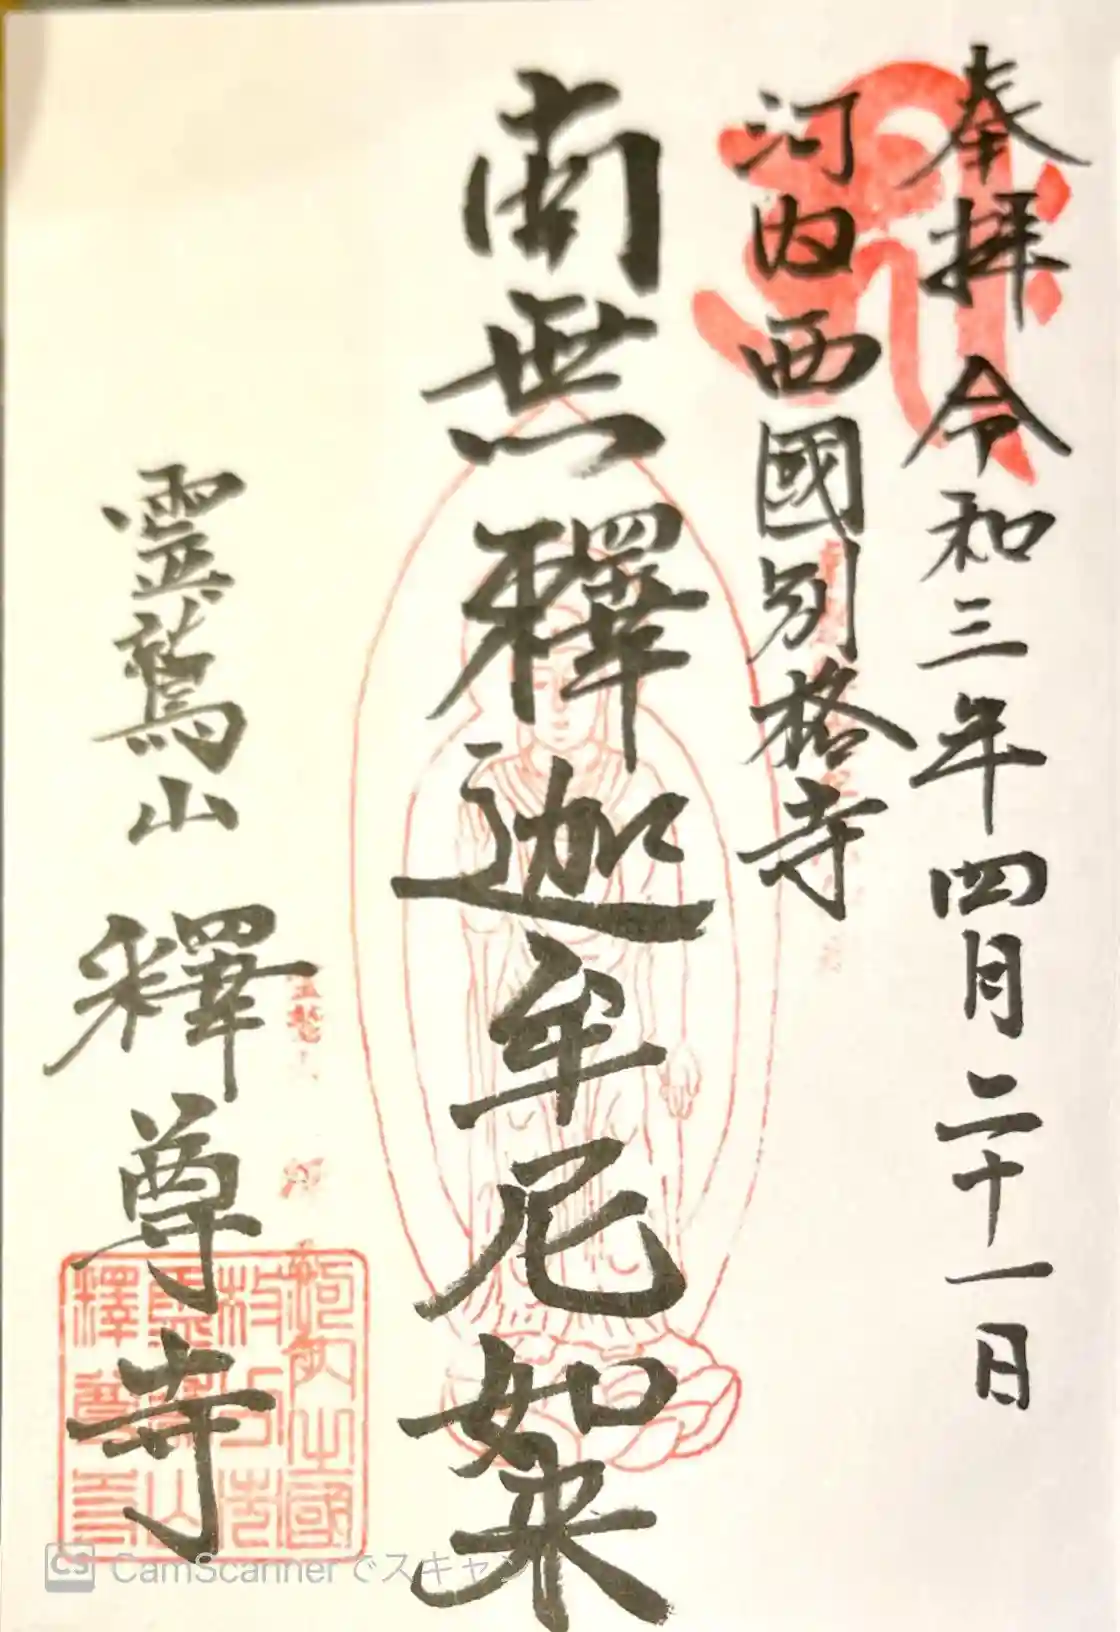 奉拝 令和三年四月二十一日
河内西國別格寺
南無釋迦牟尼如来
霊鷲山 釋尊寺
CamScannerでスキャン